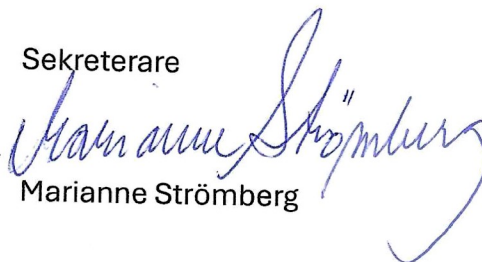 Sekreterare
Marianne Strömberg
Marianne Strömberg